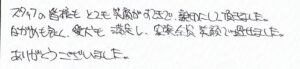 スタッフの皆様も とても笑顔がすてきで、親切にして頂きました。
ながめも良く、食事も満足し、家族全員笑顔で過せました。
ありがとうございました。